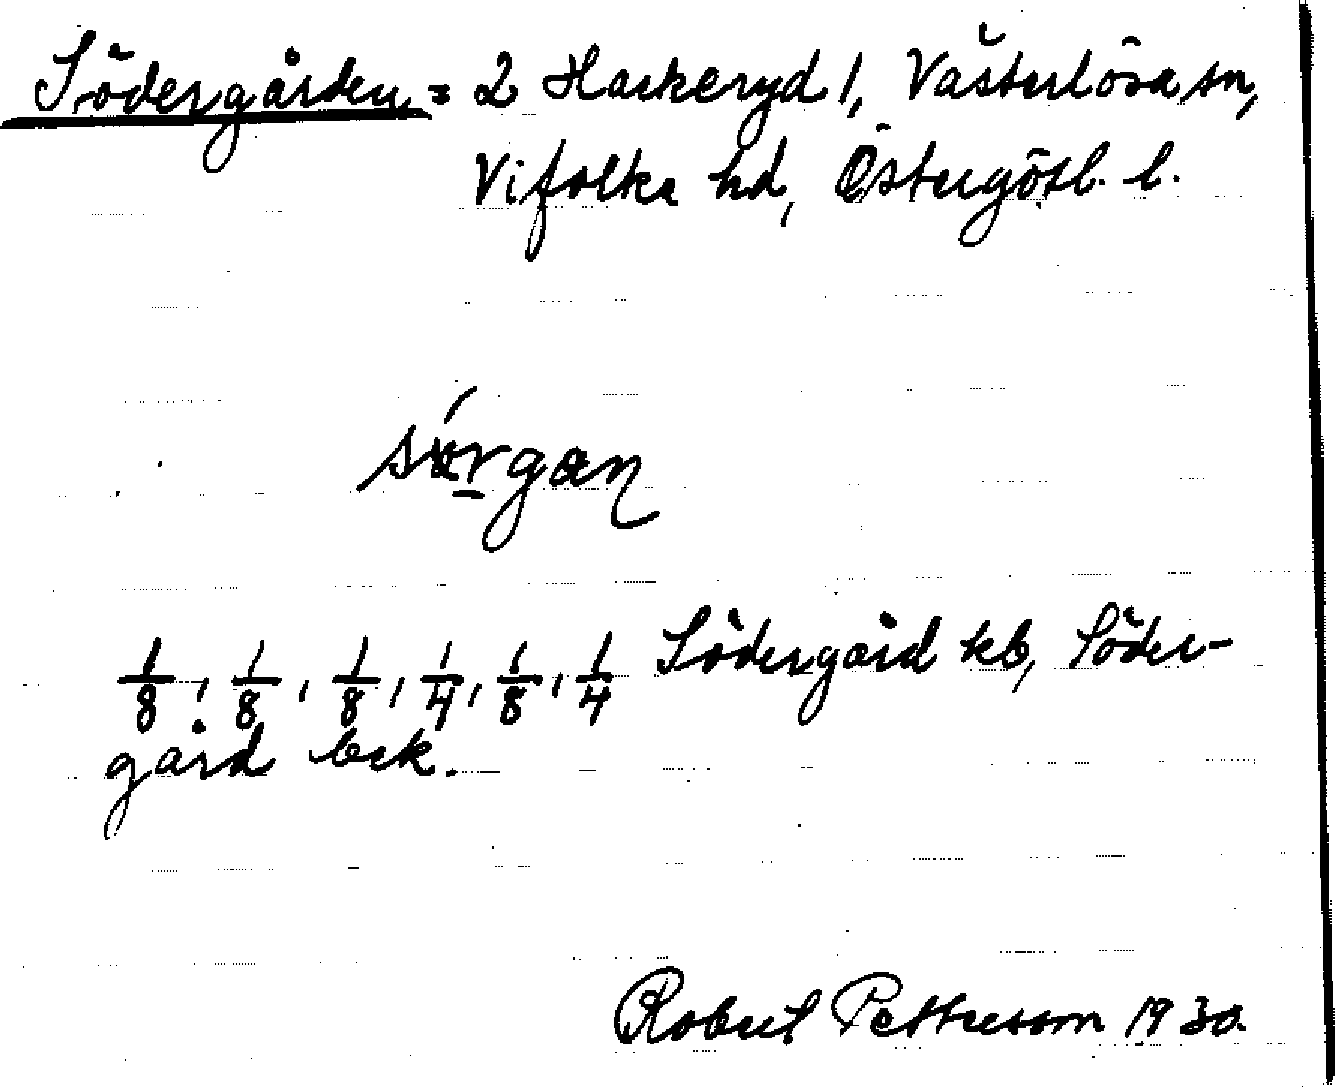 Södergården = 2 Hackeryd 1, Västerlösa sn,
Vifolka hd, Östergötl. l.
sörgan
1/8, 1/8, 1/8, 1/4, 1/8, 1/4 Södergård kb, Söder-
gård bek.
Robert Pettersson 1930.